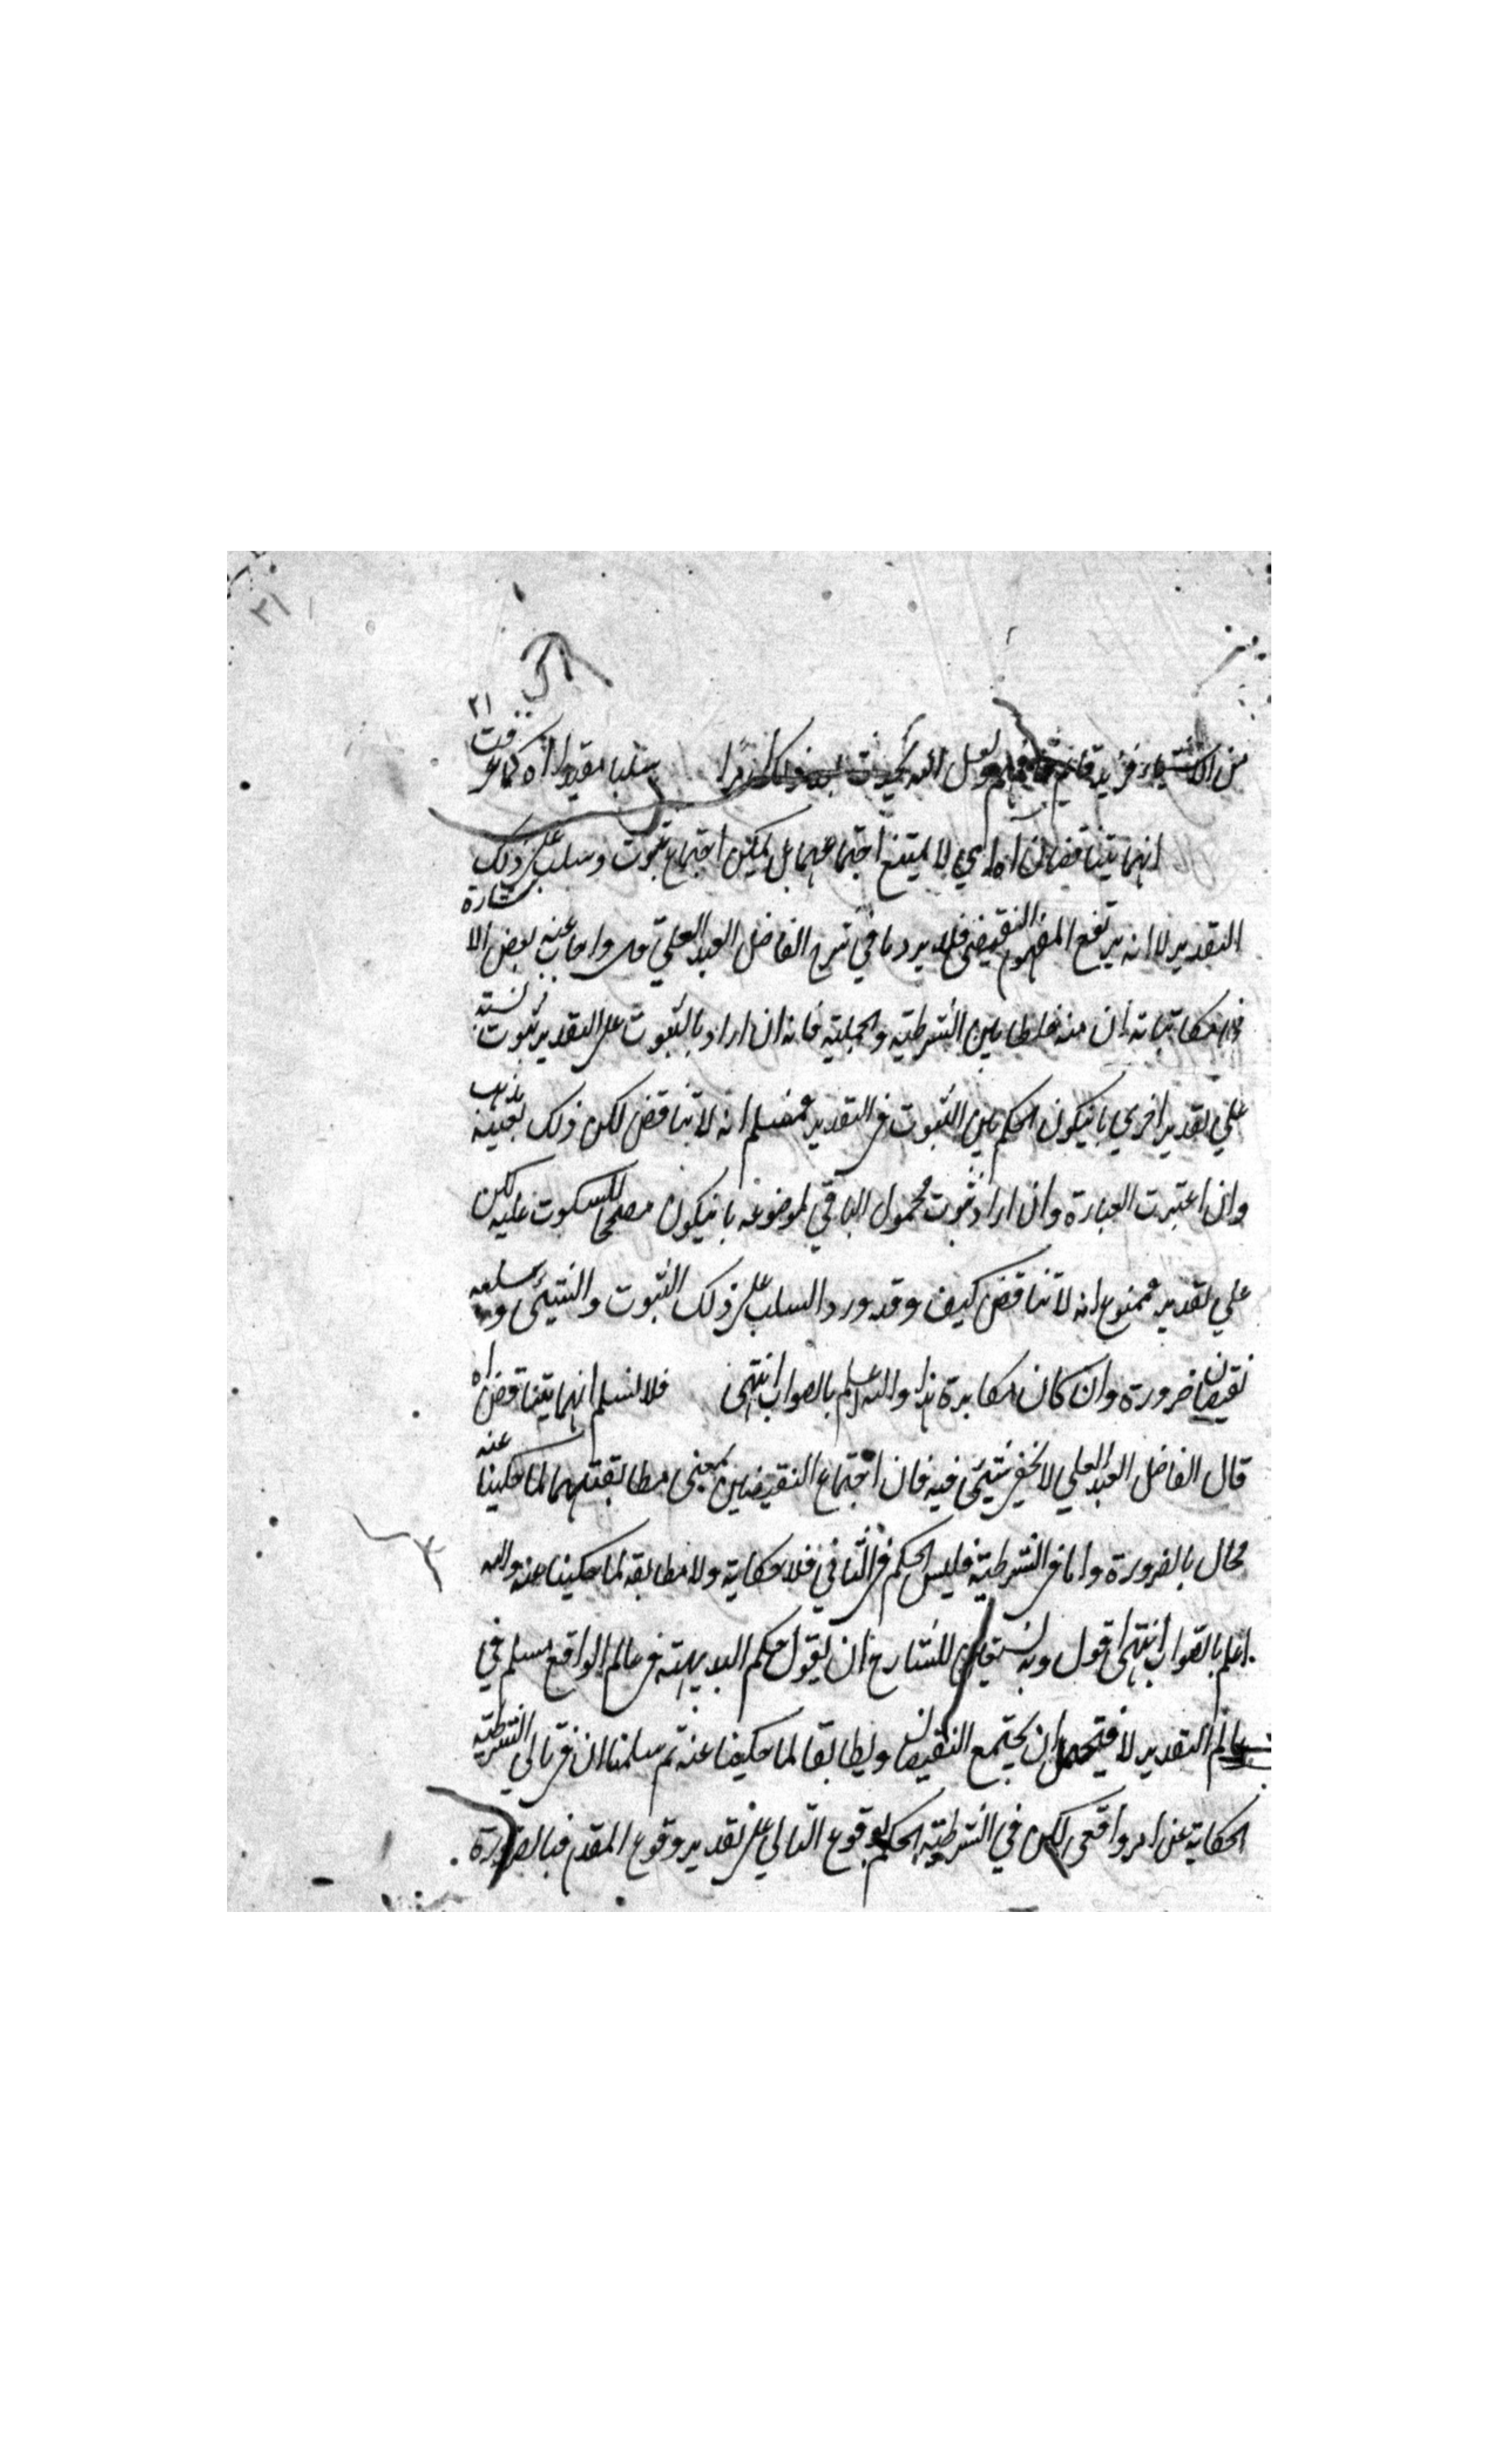 ٢١
من الاشياء فزيد قائم ولعل الله يحدث بعد ذلك امرا سلبا مقيدا اه كما عرفت
انهما يتناقضان اه اي لا يمتنع اجتماعهما بل يمكن اجتماع ثبوت وسلب على ذلك
التقدير لا انه يرتفع المفهوم النقيضي فلا يرد ما في شرح الفاضل العبد العلي واجاب عنه بعض الاشارة
مكاتباته ان منه خلطا بين الشرطية والحملية فانه ان اراد بالثبوت على التقدير ثبوت نسبته
على تقدير اخرى بانيكون الحكم بين الثبوت في التقدير فمسلم انه لا تناقض لكن ذلك بعينه
وان اعتبرت العبارة وان اراد ثبوت محمول الباقي لموضوعه بانيكون مصححا للسكوت عليه لكن
علي تقدير فممنوع انه لا تناقض كيف وقد ورد السلب على ذلك الثبوت والشيئ وسلبه
نقيضان ضرورة وان كان مكابرة هذا والله اعلم بالصواب انتهى فلا نسلم انهما يتناقضان اه
قال الفاضل العبد العلي لا يخفى شيئ فيه فان اجتماع النقيضين بمعنى مطابقتهما لما حكينا عنه
محال بالضرورة واما في الشرطية فليس الحكم في الثاني فلا حكاية ولا مطابقة لما حكينا عنه والله
اعلم بالصواب انتهى اقول وبه للشارح ان يقول حكم البديهة في عالم الواقع مسلم في
عالم التقدير لا فيحتمل ان يجتمع النقيضان ويطابقا لما حكينا عنه ثم سلمنا ان في تالي الشرطية
الحكاية عن امر واقعى لكن في الشرطية الحكم بوقوع التالي على تقدير وقوع المقدم فبالضرورة